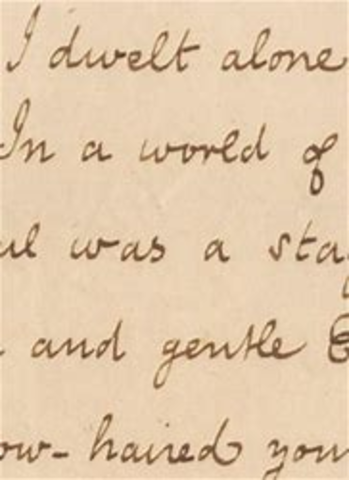 I dwelt alone
In a world of
ul was a sta
and gentle E
ow-haired you